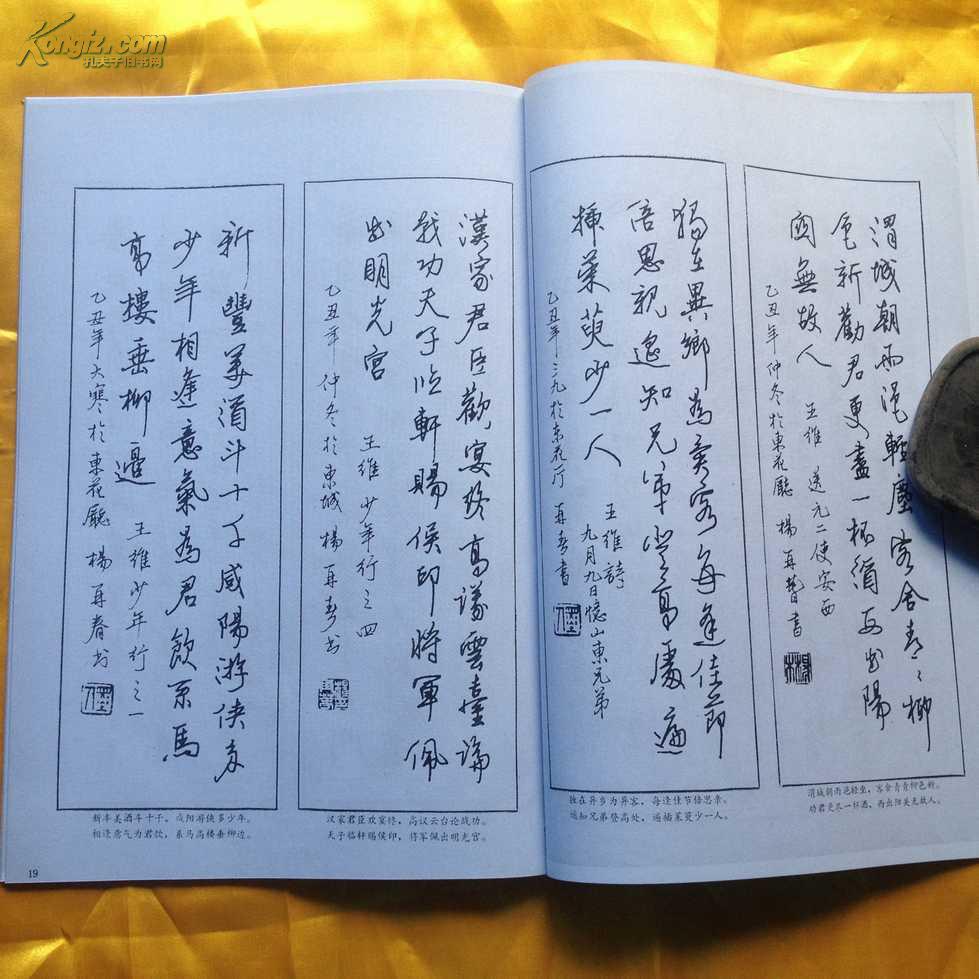 Kongfz.com
孔夫子旧书网
新豐美酒斗十千咸陽游俠多
少年相逢意氣為君飲系馬
高樓垂柳邊
王維少年行之一
乙丑年大寒於東花廳 楊再春书
新丰美酒斗十千，咸阳游侠多少年。
相逢意气为君饮，系马高楼垂柳边。
19
漢家君臣歡宴終高議雲臺論
战功天子临軒賜侯印將軍佩
出明光宮
王維少年行之四
乙丑年仲冬於東城 楊再春书
汉家君臣欢宴终，高议云台论战功。
天子临轩赐侯印，将军佩出明光宫。
獨在異鄉為異客每逢佳節
倍思親遥知兄弟登高處遍
插茱萸少一人
王維詩
九月九日憶山東兄弟
乙丑年三九於东花厅 再春書
独在异乡为异客，每逢佳节倍思亲。
遥知兄弟登高处，遍插茱萸少一人。
渭城朝雨浥輕塵客舍青〻柳
色新勸君更盡一杯酒西出陽
關無故人
王維 送元二使安西
乙丑年仲冬於東花廳 楊再春書
渭城朝雨浥轻尘，客舍青青柳色新。
劝君更尽一杯酒，西出阳关无故人。